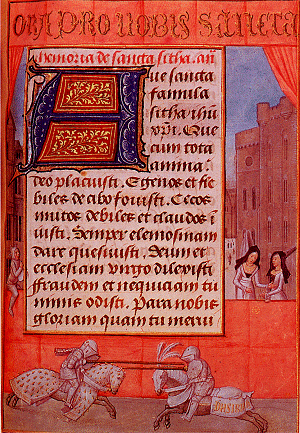 ORA PRO NOBIS SANCTA
Memoria de sancta sitha. añ
Aue sancta
famula
sitha ihũ
xp̃i. Que
cum tota
amina
deo placuisti. Egenos et fle
biles de cibo fouisti. Cecos
mutos debiles et claudos i
uisti. Semper elemosinas
dare quesiuisti. Deum et
ecclesiam uirgo dilexisti
fraudem et nequiciam tu
minus odisti. Para nobis
gloriam quam tu merui